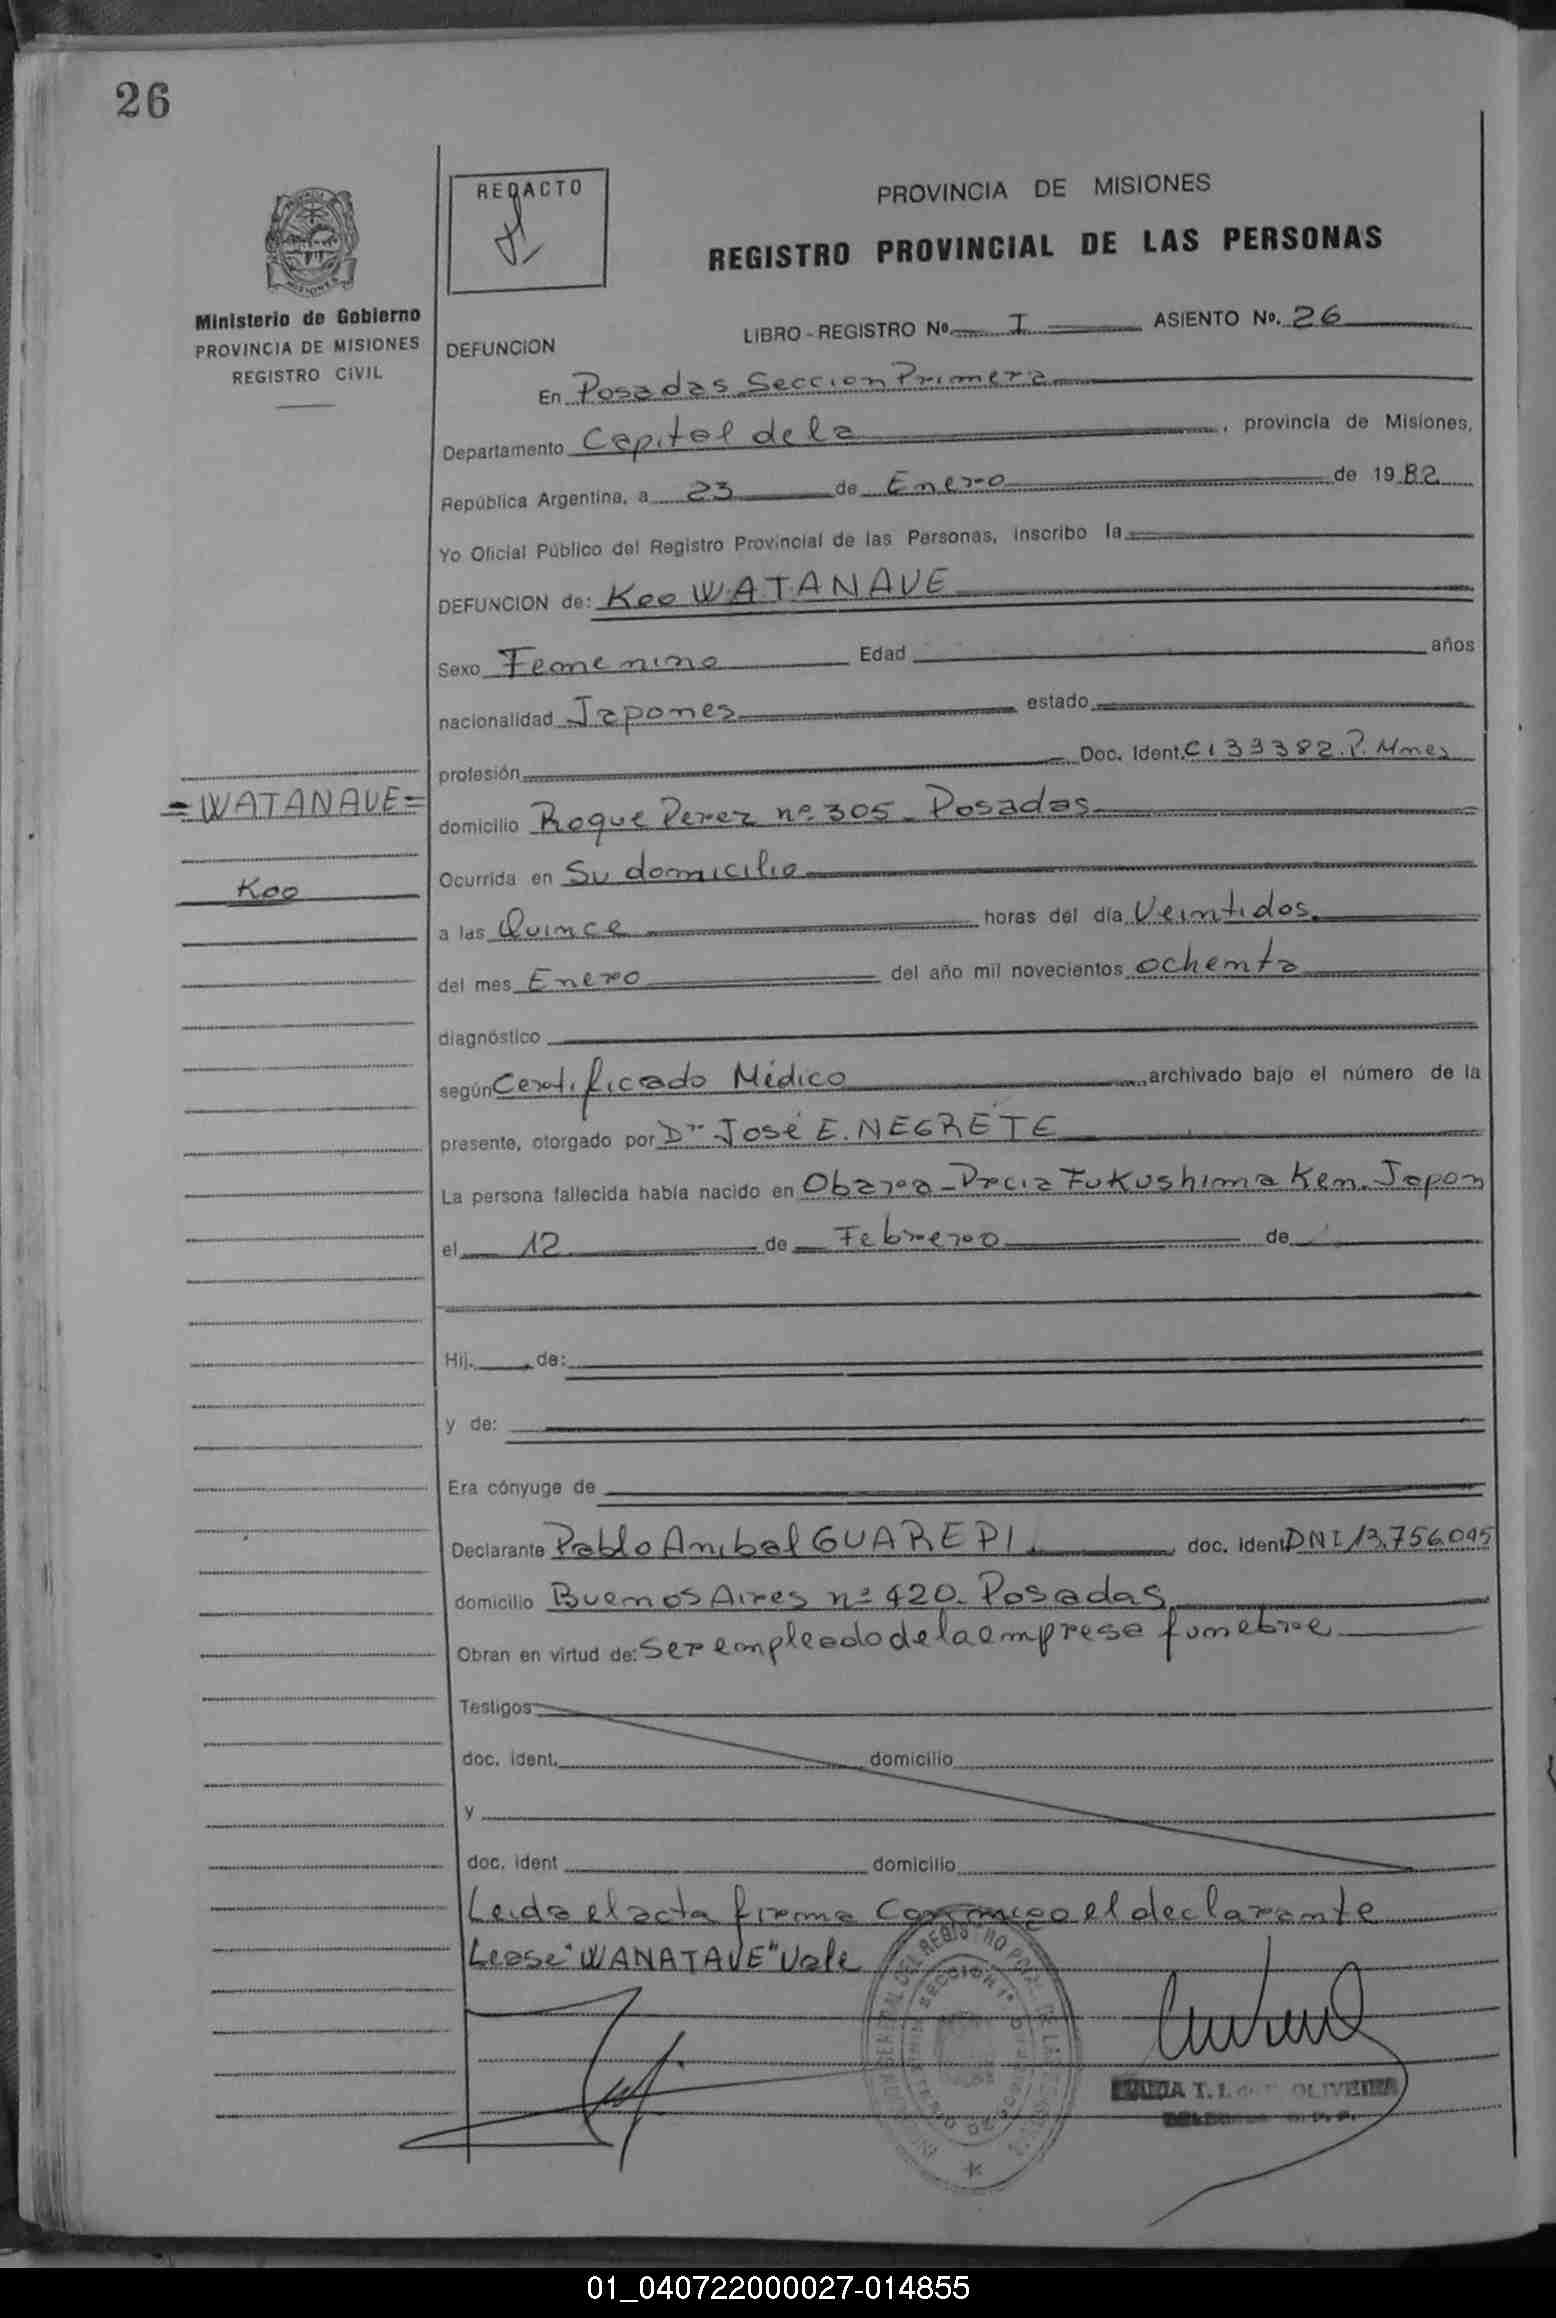 26
REDACTO
PROVINCIA DE MISIONES
REGISTRO PROVINCIAL DE LAS PERSONAS
Ministerio de Gobierno
PROVINCIA DE MISIONES
REGISTRO CIVIL
LIBRO - REGISTRO No. I ASIENTO No. 26
DEFUNCION
En Posadas Seccion Primera
Departamento Capital de la, provincia de Misiones,
República Argentina, a 23 de Enero de 1982
Yo Oficial Público del Registro Provincial de las Personas, inscribo la
DEFUNCION de: Koo WATANAUE
Sexo Femenino Edad años
nacionalidad Japones estado
profesión Doc. Ident. CI 39382. P. Mnes
=WATANAUE=
domicilio Roque Perez nº 305 - Posadas
Ocurrida en Su domicilio
Koo
a las Quince horas del día Veintidos
del mes Enero del año mil novecientos ochenta
diagnóstico
según Certificado Médico archivado bajo el número de la
presente, otorgado por Dr José E. NEGRETE
La persona fallecida había nacido en Obara - Prcia Fukushima Ken. Japon
el 12 de Febrero de
Hij. de:
y de:
Era cónyuge de
Declarante Pablo Anibal GUAREPI doc. ident DNI 13.756.095
domicilio Buenos Aires nº 420 - Posadas
Obran en virtud de: Ser empleado de la empresa funebre
Testigos
doc. ident. domicilio
y
doc. ident domicilio
Leida el acta firma conmigo el declarante
Lease "WANATAUE" Vale
SECCION 1ª
T. I. de OLIVEIRA
01_040722000027-014855